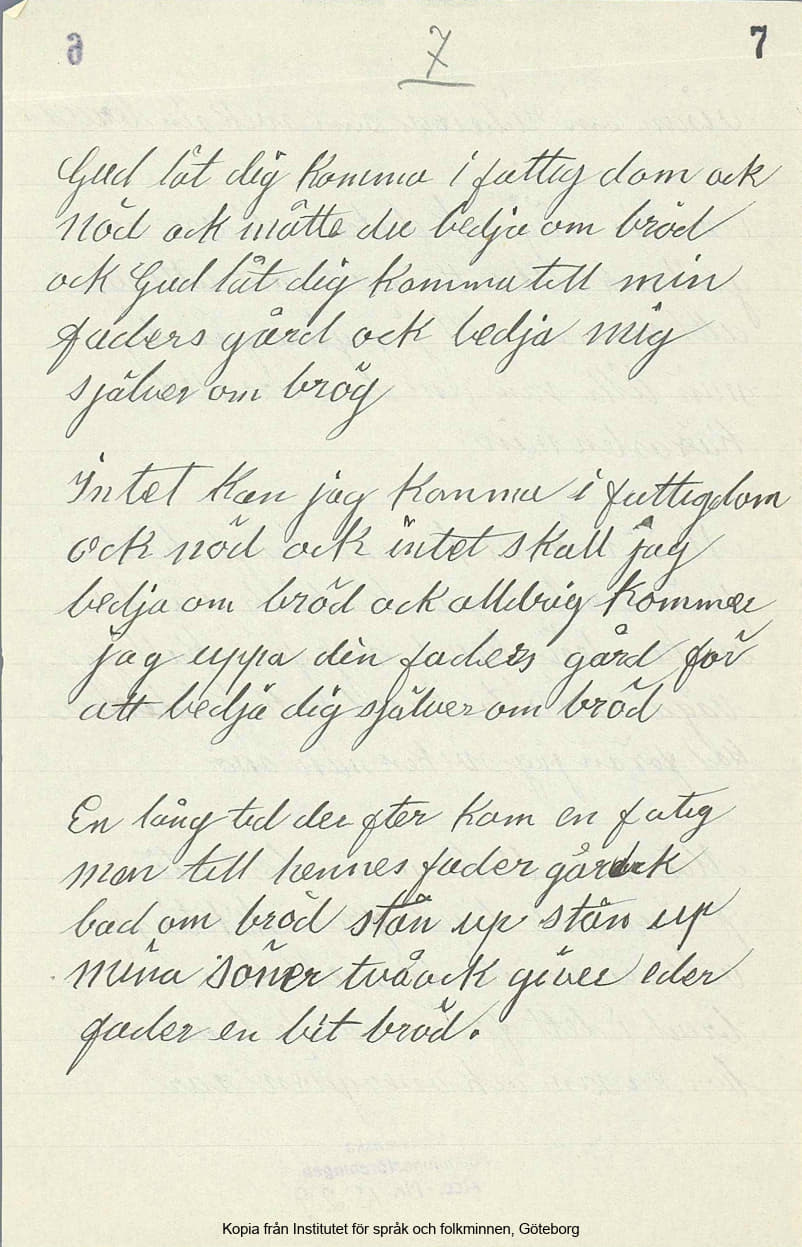 6
7
7
Gud låt dig komma i fattig dom ock
nöd ock måtte du bedja om bröd
ock Gud låt dig komma till min
faders gård ock bedja mig
sjelver om brög
Intet kan jag komma i fattigdom
ock nöd ock intet skall jag
bedja om bröd ock alldrig kommer
jag uppa din faders gård för
att bedja dig sjelver om bröd
En lång tid der efter kom en fatig
man till hennes fader gård ock
bad om bröd stån up stån up
mina söner två ock giver eder
fader en bit bröd.
Kopia från Institutet för språk och folkminnen, Göteborg